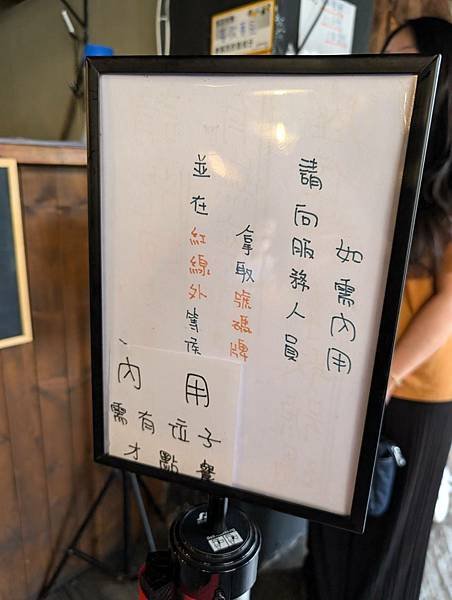 如需內用
請向服務人員
拿取號碼牌
並在紅線外等候
內用
需有位子
才點餐